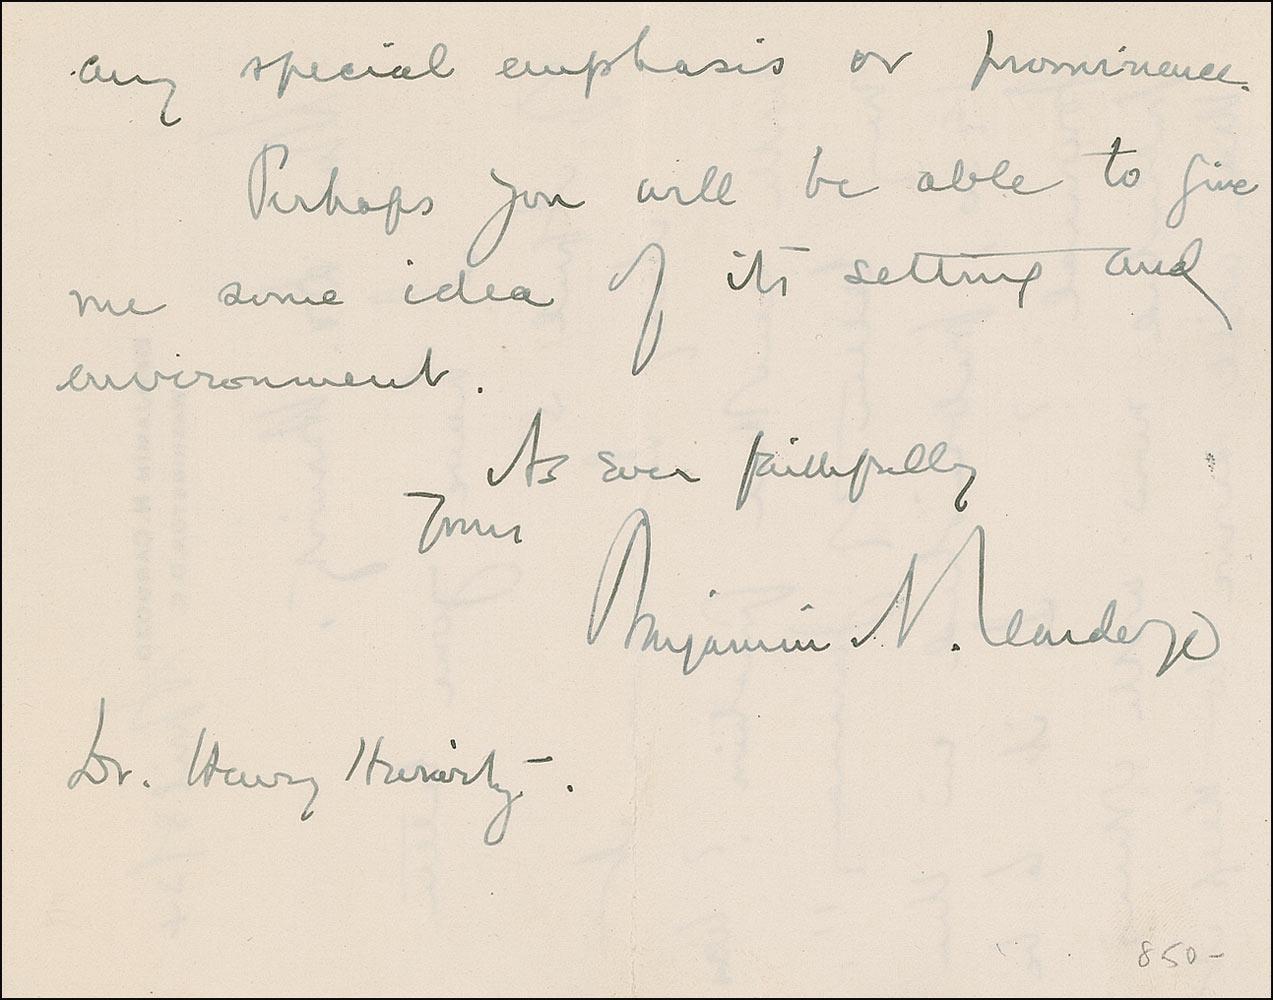 any special emphasis or prominence.
Perhaps you will be able to give
me some idea of its setting and
environment.
As ever faithfully
Yours
Benjamin N. Cardozo
Dr. Henry Hurwitz.
850-